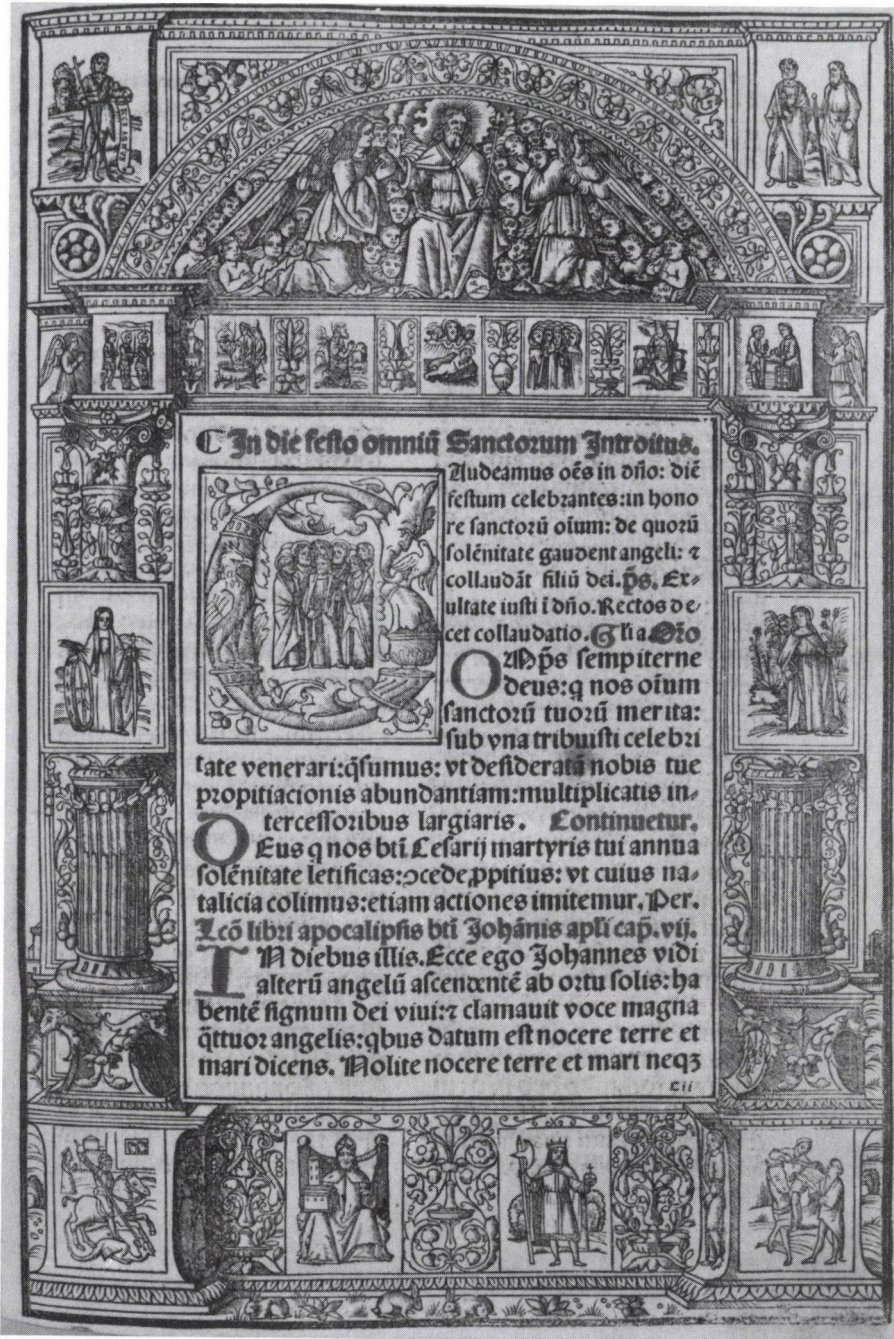 ECCE AGNUS
℃ In diē festo omniū Sanctorum Introitus.
GAudeamus oēs in dño: diē
festum celebrantes: in hono
re sanctorū oīum: de quorū
solēnitate gaudent angeli: ⁊
collaudāt filiū dei. p̄s. Ex⸗
ultate iusti ī dño. Rectos de⸗
cet collaudatio. Gl̄ia Or̄o
OMp̄s sempiterne
deus: q nos oīum
sanctorū tuorū merita:
sub vna tribuisti celebri
tate venerari: q̄sumus: vt desideratā nobis tue
propitiacionis abundantiam: multiplicatis in⸗
tercessoribus largiaris. Continuetur.
DEus q nos bt̄i Cesarij martyris tui annua
solēnitate letificas: ꝯcede ꝓpitius: vt cuius na⸗
talicia colimus: etiam actiones imitemur. Per.
Lcō libri apocalipsis bt̄i Johānis apl̄i cap̄. vij.
IN diebus illis. Ecce ego Johannes vidi
alterū angelū ascendentē ab ortu solis: ha
bentē signum dei viui: ⁊ clamauit voce magna
q̄ttuor angelis: qbus datum est nocere terre et
mari dicens. Nolite nocere terre et mari neqꝫ